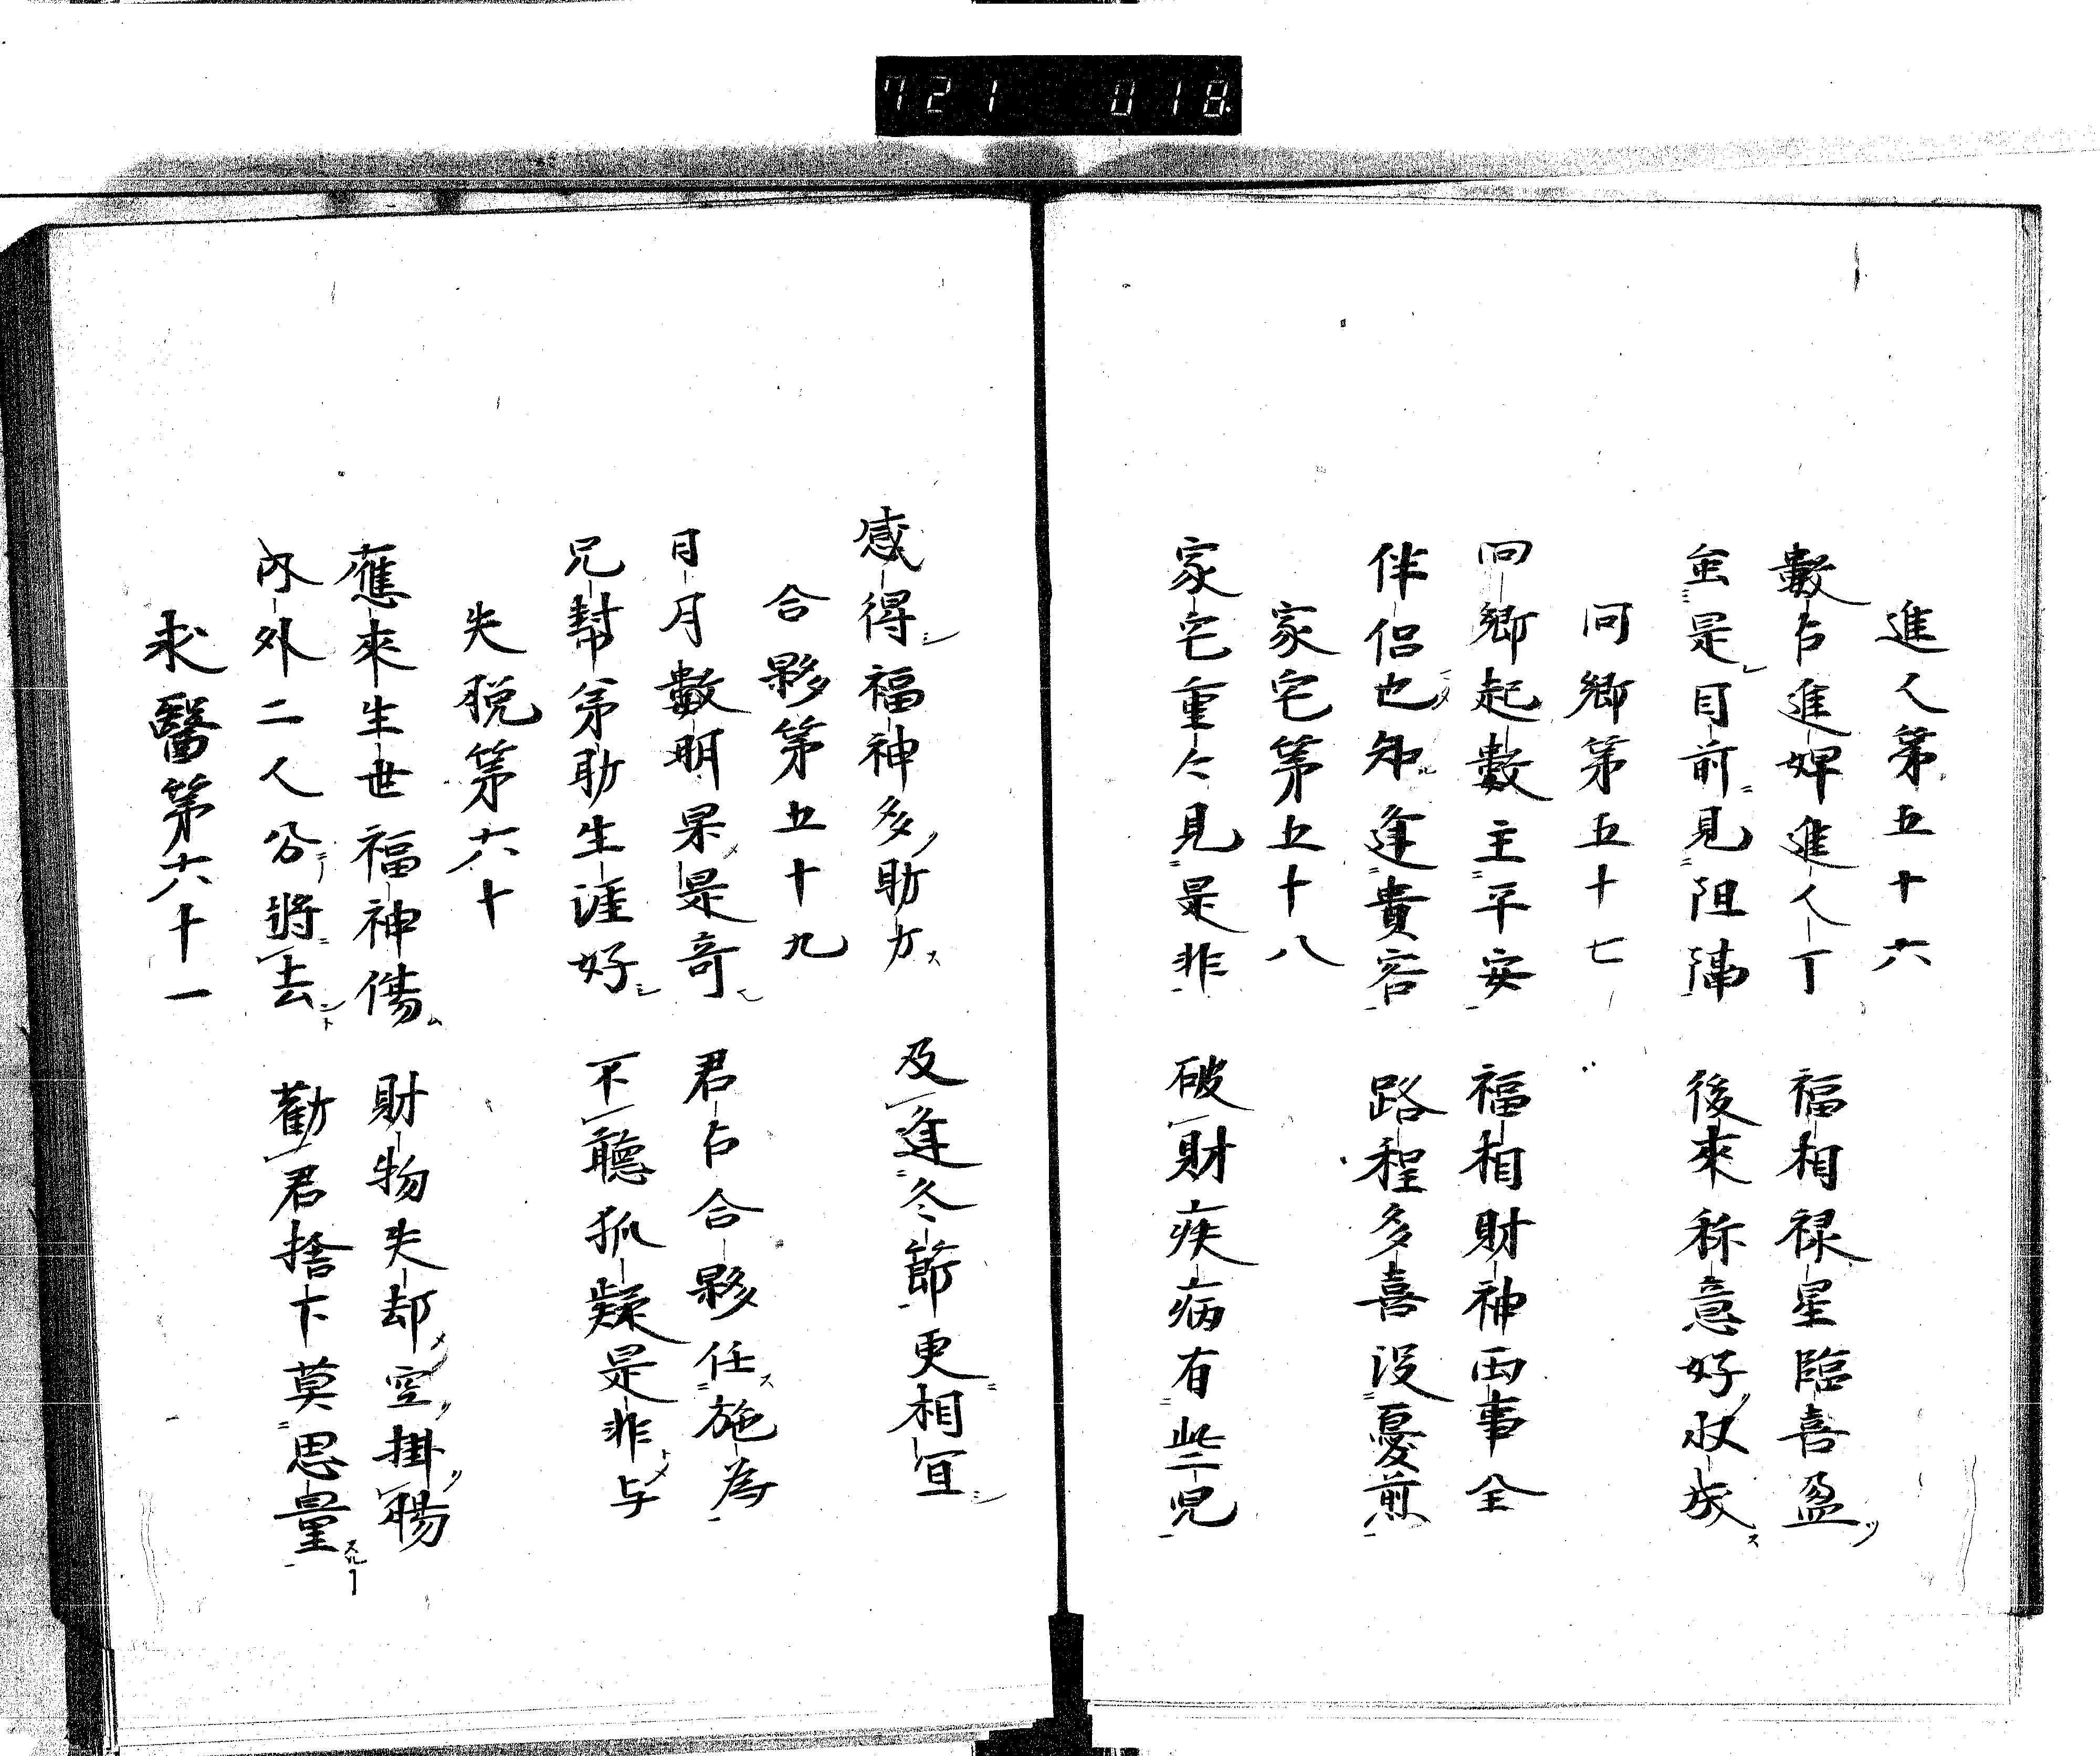 721 018
進人第五十六
數占進婢進人丁 福相禄星臨喜盈
虽是目前見阻滞 後來称意好收成
回鄉第五十七
回鄉起數主平安 福相財神両事全
伴侣也知逢貴客 路程多喜没憂煎
家宅第五十八
家宅重々見是非 破財疾病有些児
感得福神多助力 及逢冬節更相宜
合夥第五十九
日月數明果是奇 君占合夥任施為
兄幇弟助生涯好 不聽狐疑是非与
失脱第六十
應來生世福神傷 財物失却空掛腸
内外二人分將去 勸君捨下莫思量
求醫第六十一